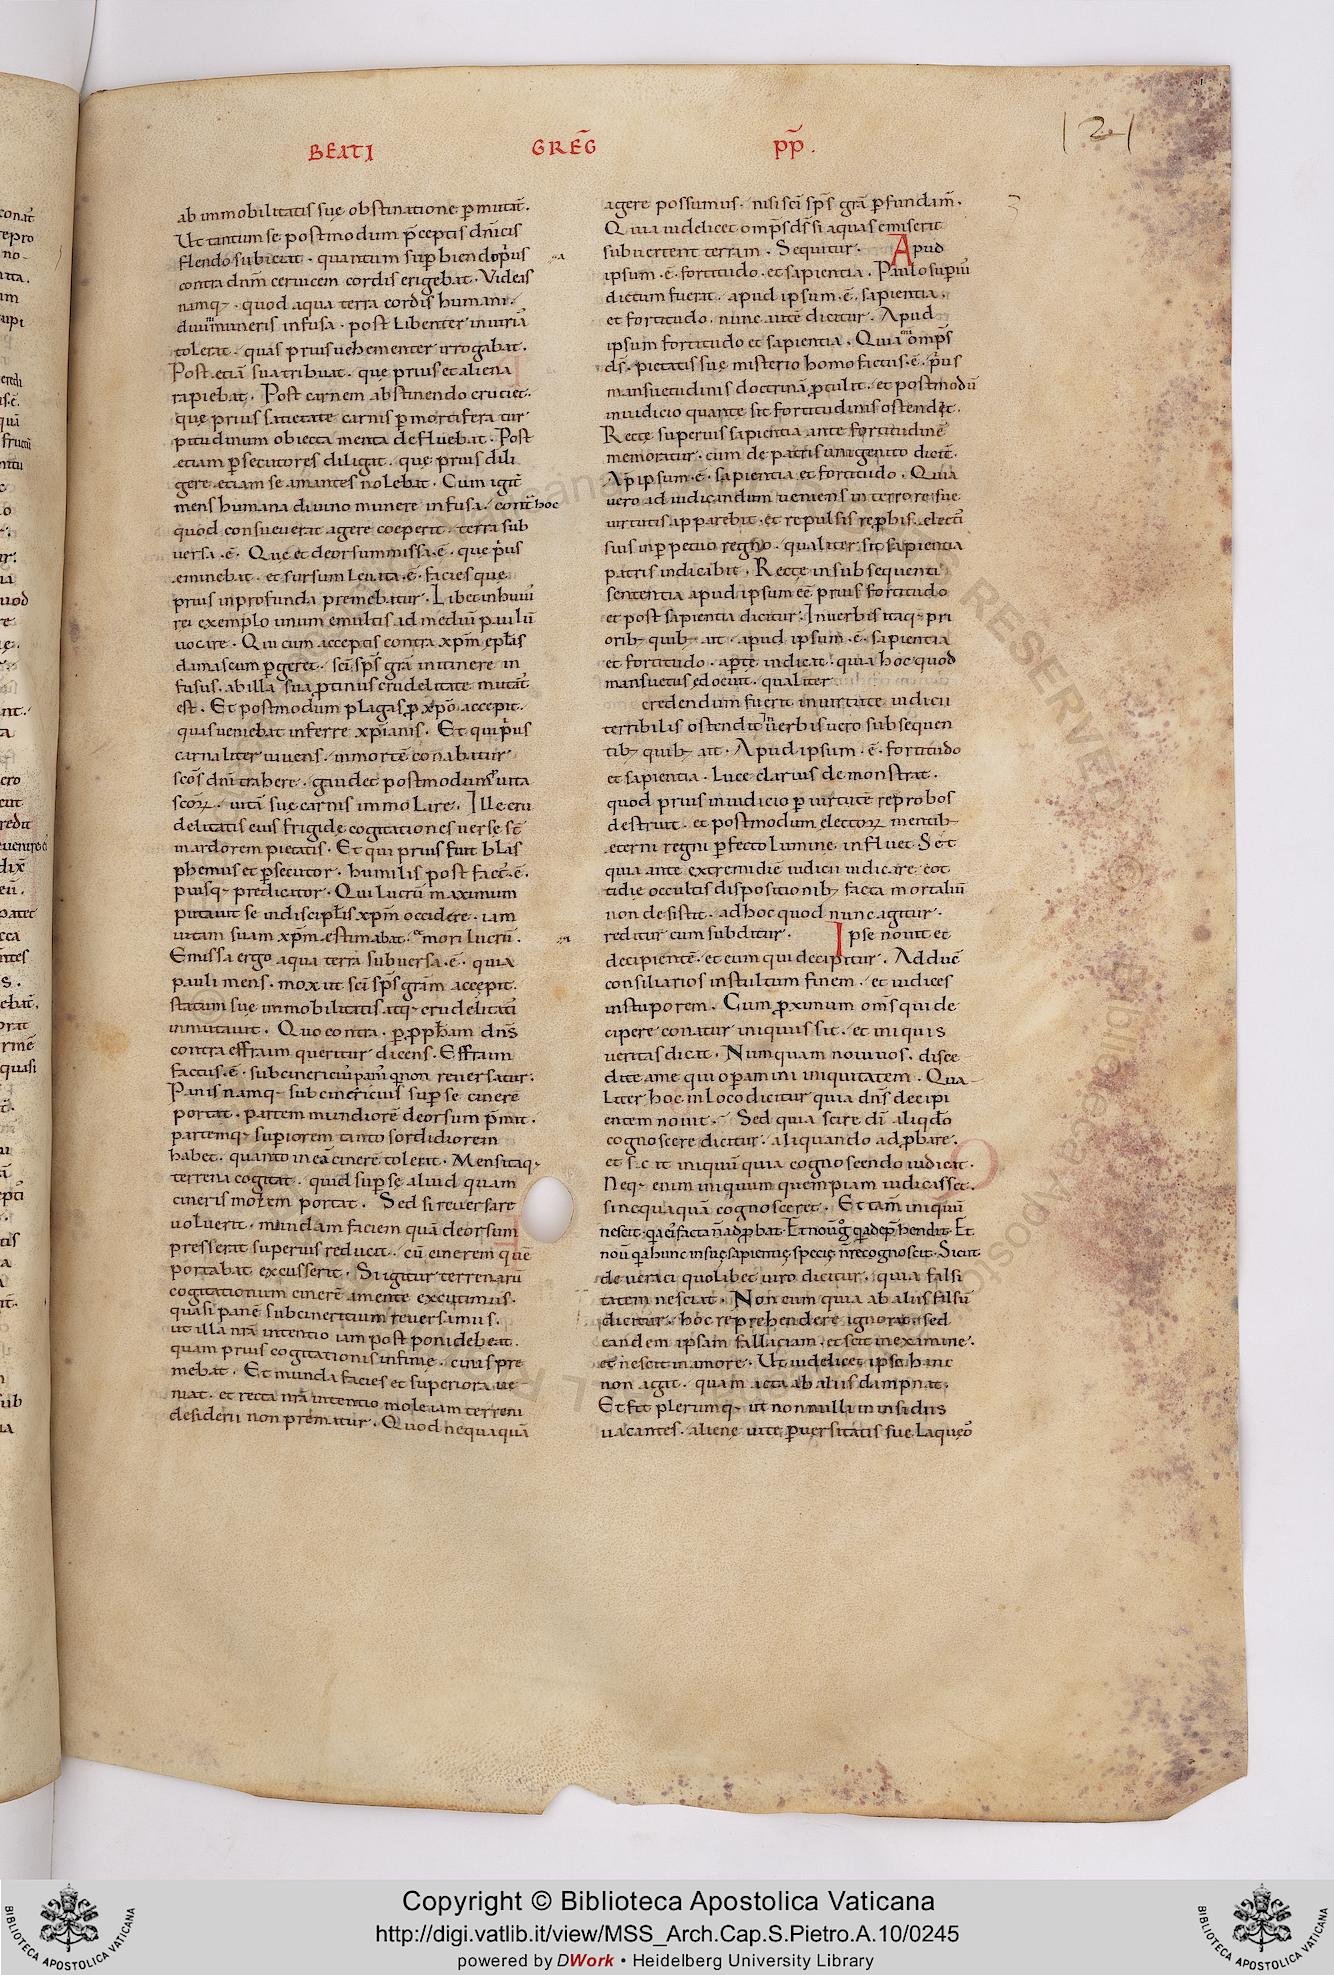 BEATI GREG̅ P̅P̅.
121
ab immobilitatis suę obstinatione p̅mutat̅.
Ut tantum se postmodum p̅ceptis dn̅icis
flendo subiciat · quantum sup̅biendo p̍us
contra dn̅m ceruicem cordis erigebat · Videas
namq; · quod aqua terra cordis humani ·
diuini muneris infusa · post libenter iniuria̅
tolerat · quas prius uehementer irrogabat ·
Post etia̅ sua tribuat · quę prius et aliena
rapiebat · Post carnem abstinendo cruciet ·
quę prius satietate carnis p̅ mortifera tur
pitudinum obiecta menta defluebat · Post
etiam p̅secutores diligat · quę prius dili
gere etiam se amantes nolebat · Cum igit̅
mens humana diuino munere infusa · cont̅ hoc
quod consueuerat agere coeperit · terra sub
uersa · e̅ · Quę et deorsum missa · e̅ · quę p̍us
eminebat · et sursum leuata · e̅ · facies quę
prius in profunda premebatur · Libet in huiu̍
rei exemplo unum e multis ad mediu̅ paulu̅
uocare · Qui cum acceptis contra xp̅m ep̅lis
damascum p̅geret · sc̅i sp̅s gr̅a in itinere in
fusus · ab illa sua p̅tinus crudelitate mutat̅
est · Et postmodum plagas p̅ xp̅o accepit ·
quas ueniebat inferre xp̅ianis · Et qui p̍us
carnaliter uiuens · in morte̅ conabatur
sc̅os dn̅i trahere · gaudet postmodum p̅ uita
sc̅oꝝ · uita̅ suę carnis immolare · Ille cru
delitatis eius frigidę cogitationes uersę st̅
in ardorem pietatis · Et qui prius fuit blas
phemus et p̅secutor · humilis post fact̅ · e̅ ·
piusq; predicator · Qui lucru̅ maximum
putauit se in discip̅lis xp̅m occidere · iam
uitam suam xp̅m estimabat · et mori lucru̅ ·
Emissa ergo aqua terra subuersa · e̅ · quia
pauli mens · mox ut sc̅i sp̅s gr̅am accepit ·
statum suę immobilitatis atq; crudelitati̍
inmutauit · Quo contra · p̅ p̅p̅ham dn̅s
contra effraim queritur dicens · Effraim
factus · e̅ · subcinericiu̅ pani̍ q̍ non reuersatur ·
Panis namq; subcinericius sup̅ se cinere̅
portat · partem mundiore̅ deorsum p̅mit ·
partemq; sup̅iorem tanto sordidiorem
habet · quanto in ea̅ cinere̅ tolerat · Mens itaq;
terrena cogitat · quid sup̅ sę aliud quam
cineris molem portat · Sed si reuersare
uoluerit · mundam faciem qua̅ deorsum
presserat superius reducit · cu̅ cinerem que̅
portabat excusserit · Si igitur terrenaru̅
cogitationum cinere̅ a mente excutimus ·
quasi pane̅ subcineritium reuersamus ·
ut illa nr̅a intentio iam post poni debeat ·
quam prius cogitationis infimę · cinis pre
mebat · Et munda facies et superiora ue
niat · et recta nr̅a intentio mole iam terreni
desiderii non prematur · Quod nequaqua̅
agere possumus · nisi sc̅i sp̅s gr̅a p̅fundam̅ ·
Quia uidelicet omp̅s ds̅ si aquas emiserit
subuertent terram · Sequitur · Apud
ipsum · e̅ · fortitudo · et sapientia · Paulo sup̅iu̍
dictum fuerat · apud ipsum · e̅ · sapientia ·
et fortitudo · nunc aute̅ dicitur · Apud
ipsum fortitudo et sapientia · Quia omp̅s
ds̅ · pietatis suę misterio homo factus · e̅ · p̍us
mansuetudinis doctrina̅ p̅tulit · et postmodu̅
in iudicio quantę sit fortitudinis ostendet ·
Recte superius sapientia ante fortitudine̅
memoratur · cum de patris unigenito dicit̅ ·
Ap̅ ipsum · e̅ · sapientia et fortitudo · Quia
uero ad iudicandum ueniens in terrore suę
uirtutis apparebit · et repulsis rep̅bis · electi̍
suis in p̅petuo regno · qualiter sit sapientia
patris indicabit · Recte in subsequenti
sententia apud ipsum ee̅ prius fortitudo
et post sapientia dicitur · In uerbis itaq; pri
orib; quib; ait · apud ipsum · e̅ · sapientia
et fortitudo · ap̅te indicat · quia hoc quod
mansuetus edocuit · qualiter
credendum fuerit in uirtute iudicii
terribilis ostendit · In uerbis uero subsequen
tib; quib; ait · Apud ipsum · e̅ · fortitudo
et sapientia · Luce clarius demonstrat ·
quod prius in iudicio p̅ uirtute̅ reprobos
destruit · et postmodum electoꝝ mentib;
ęterni regni p̅fecto lumine influet · Set
quia ante extremi die̅ iudicii iudicare cot
tidie occultis dispositionib; facta mortaliu̅
non desistit · ad hoc quod nunc agitur ·
reditur cum subditur · Ipse nouit et
decipiente̅ · et eum qui decipitur · Adduc̅
consiliarios in stultum finem · et iudices
in stuporem · Cum p̅ximum om̅s qui de
cipere conatur iniquus sit · et iniquis
ueritas dicat · Numquam noui uos · disce
dite a me qui op̅amini iniquitatem · Qua
liter hoc in loco dicitur quia dn̅s decipi
entem nouit · Sed quia scire dn̅i aliqdo
cognoscere dicitur · aliquando adp̅bare ·
et scit iniquu̅ quia cognoscendo iudicat ·
Neq; enim iniquum quempiam iudicasset ·
si nequaqua̅ cognosceret · Et tam̅ iniquu̅
nescit · q̍a ei̍ facta n̅ adp̅bat · Et nouit g̊ q̍a dep̅hendit · Et
non̅ q̍a hunc in suę sapientię specię n̅ recognoscit · Sicut
de ueraci quolibet uiro dicitur · quia falsi
tatem nesciat · Non eum quia ab aliis falsu̅
dicitur · hoc reprehendere ignorat · sed
eandem ipsam fallaciam · et scit in examine ·
et nescit in amore · Ut uidelicet ipse hanc
non agit · quam acta ab aliis dampnat ·
Et fit plerumq; ut nonnulli in insidiis
uacantes · alienę uitę p̅uersitatis suę laqueo̍
Copyright © Biblioteca Apostolica Vaticana
http://digi.vatlib.it/view/MSS_Arch.Cap.S.Pietro.A.10/0245
powered by DWork • Heidelberg University Library
BIBLIOTECA APOSTOLICA VATICANA
BIBLIOTECA APOSTOLICA VATICANA